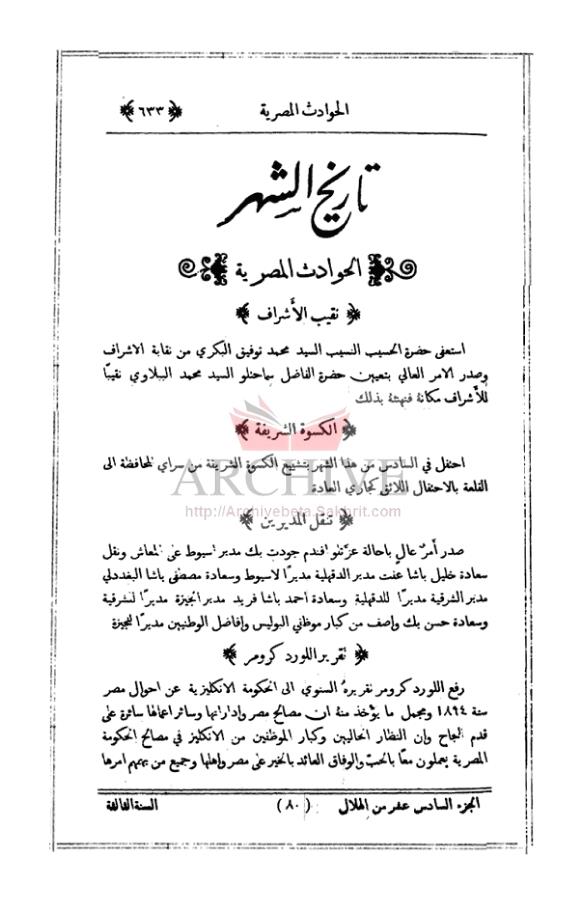 الحوادث المصرية ﴿ ٦٣٣ ﴾
تاريخ الشهر
الحوادث المصرية
﴿ نقيب الأشراف ﴾
استعفى حضرة الحسيب النسيب السيد محمد توفيق البكري من نقابة الاشراف
وصدر الامر العالي بتعيين حضرة الفاضل سماحتلو السيد محمد الببلاوي نقيبًا
للأشراف مكانهُ فنهنئهُ بذلك
﴿ الكسوة الشريفة ﴾
احتفل في السادس من هذا الشهر بتشييع الكسوة الشريفة من سراي المحافظة الى
القلعة بالاحتفال اللائق كجاري العادة
ARCHIVE
http://Archivebeta.Sakhrit.com
﴿ تنقل المديرين ﴾
صدر أمرٌ عالٍ باحالة عزتلو افندم جودت بك مدير اسيوط على المعاش ونقل
سعادة خليل باشا عفت مدير الدقهلية مديرًا لاسيوط وسعادة مصطفى باشا البغددلي
مدير الشرقية مديرًا للدقهلية وسعادة احمد باشا فريد مدير الجيزة مديرًا للشرقية
وسعادة حسن بك واصف من كبار موظفي البوليس وافاضل الوطنيين مديرًا للجيزة
﴿ تقرير اللورد كرومر ﴾
رفع اللورد كرومر تقريرهُ السنوي الى الحكومة الانكليزية عن احوال مصر
سنة ١٨٩٤ ومجمل ما يؤخذ منهُ ان مصالح مصر واداراتها وسائر اعمالها سائرة على
قدم النجاح وإن النظار الحاليين وكبار الموظفين من الانكليز في مصالح الحكومة
المصرية يعملون معًا بالحبّ والوفاق العائد بالخير على مصر واهلها وجميع من يهمهم امرها
الجزء السادس عشر من الهلال ( ٨٠ ) السنة الثالثة